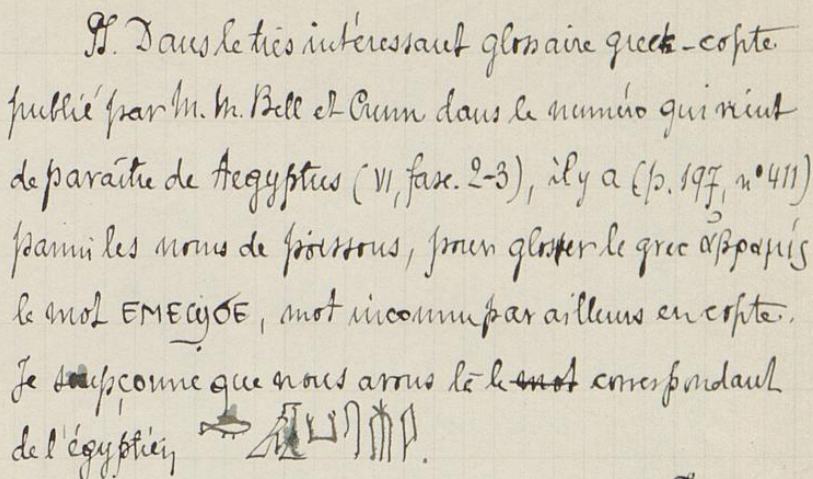 PS. Dans le très intéressant glossaire greek-copte
publié par M. M. Bell et Crum dans le numéro qui vient
de paraître de Aegyptus (VI, fasc. 2-3), il y a (p. 197, n° 411)
parmi les noms de poissons, pour gloser le grec ἀβραμίς
le mot ⲉⲙⲉϣϭⲉ, mot inconnu par ailleurs en copte.
Je soupçonne que nous avons là le mot correspondant
de l'égyptien